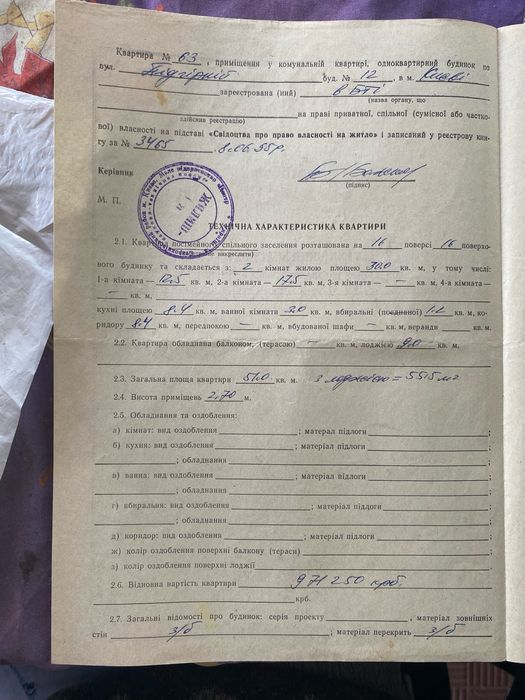 Квартира № 63, приміщення у комунальній квартирі, одноквартирний будинок по
вул. Підгірній буд. № 12, в м. Києві
зареєстрована (ний) в БТІ
(назва органу, що
на праві приватної, спільної (сумісної або частко-
здійснив реєстрацію)
вої) власності на підставі «Свідоцтва про право власності на житло» і записаний у реєстрову кни-
гу за № 3465 8.06.95р.
Керівник
(підпис)
М. П.
ТЕХНІЧНА ХАРАКТЕРИСТИКА КВАРТИРИ
2.1. Квартира посімейного, спільного заселення розташована на 16 поверсі 16 поверхо-
вого будинку та складається з: 2 кімнат жилою площею 30.0 кв. м, у тому числі:
1-а кімната — 12.5 кв. м, 2-а кімната — 17.5 кв. м, 3-я кімната — – кв. м, 4-а кімната —
– кв. м,
кухні площею 8.4 кв. м, ванної кімнати кв. м, вбиральні (поєднаної) 1.2 кв. м, ко-
ридору 8.4 кв. м, передпокою — – кв. м, вбудованої шафи – кв. м, веранди кв. м.
2.2. Квартира обладнана балконом, (терасою) – кв. м, лоджією 9.0 кв. м,
2.3. Загальна площа квартири 51.0 кв. м. з лоджією = 55.5 м2
2.4. Висота приміщень 2.70 м.
2.5. Обладнання та оздоблення:
а) кімнат: вид оздоблення ; матеріал підлоги
б) кухня: вид оздоблення ; матеріал підлоги
; обладнання
в) ванна: вид оздоблення ; матеріал підлоги
; обладнання
г) вбиральня: вид оздоблення ; матеріал підлоги
; обладнання
д) коридор: вид оздоблення ; матеріал підлоги
ж) колір оздоблення поверхні балкону (тераси)
з) колір оздоблення поверхні лоджії
2.6. Відновна вартість квартири 971 250 крб.
крб.
2.7. Загальні відомості про будинок: серія проекту , матеріал зовнішніх
стін з/б ; матеріал перекрить з/б